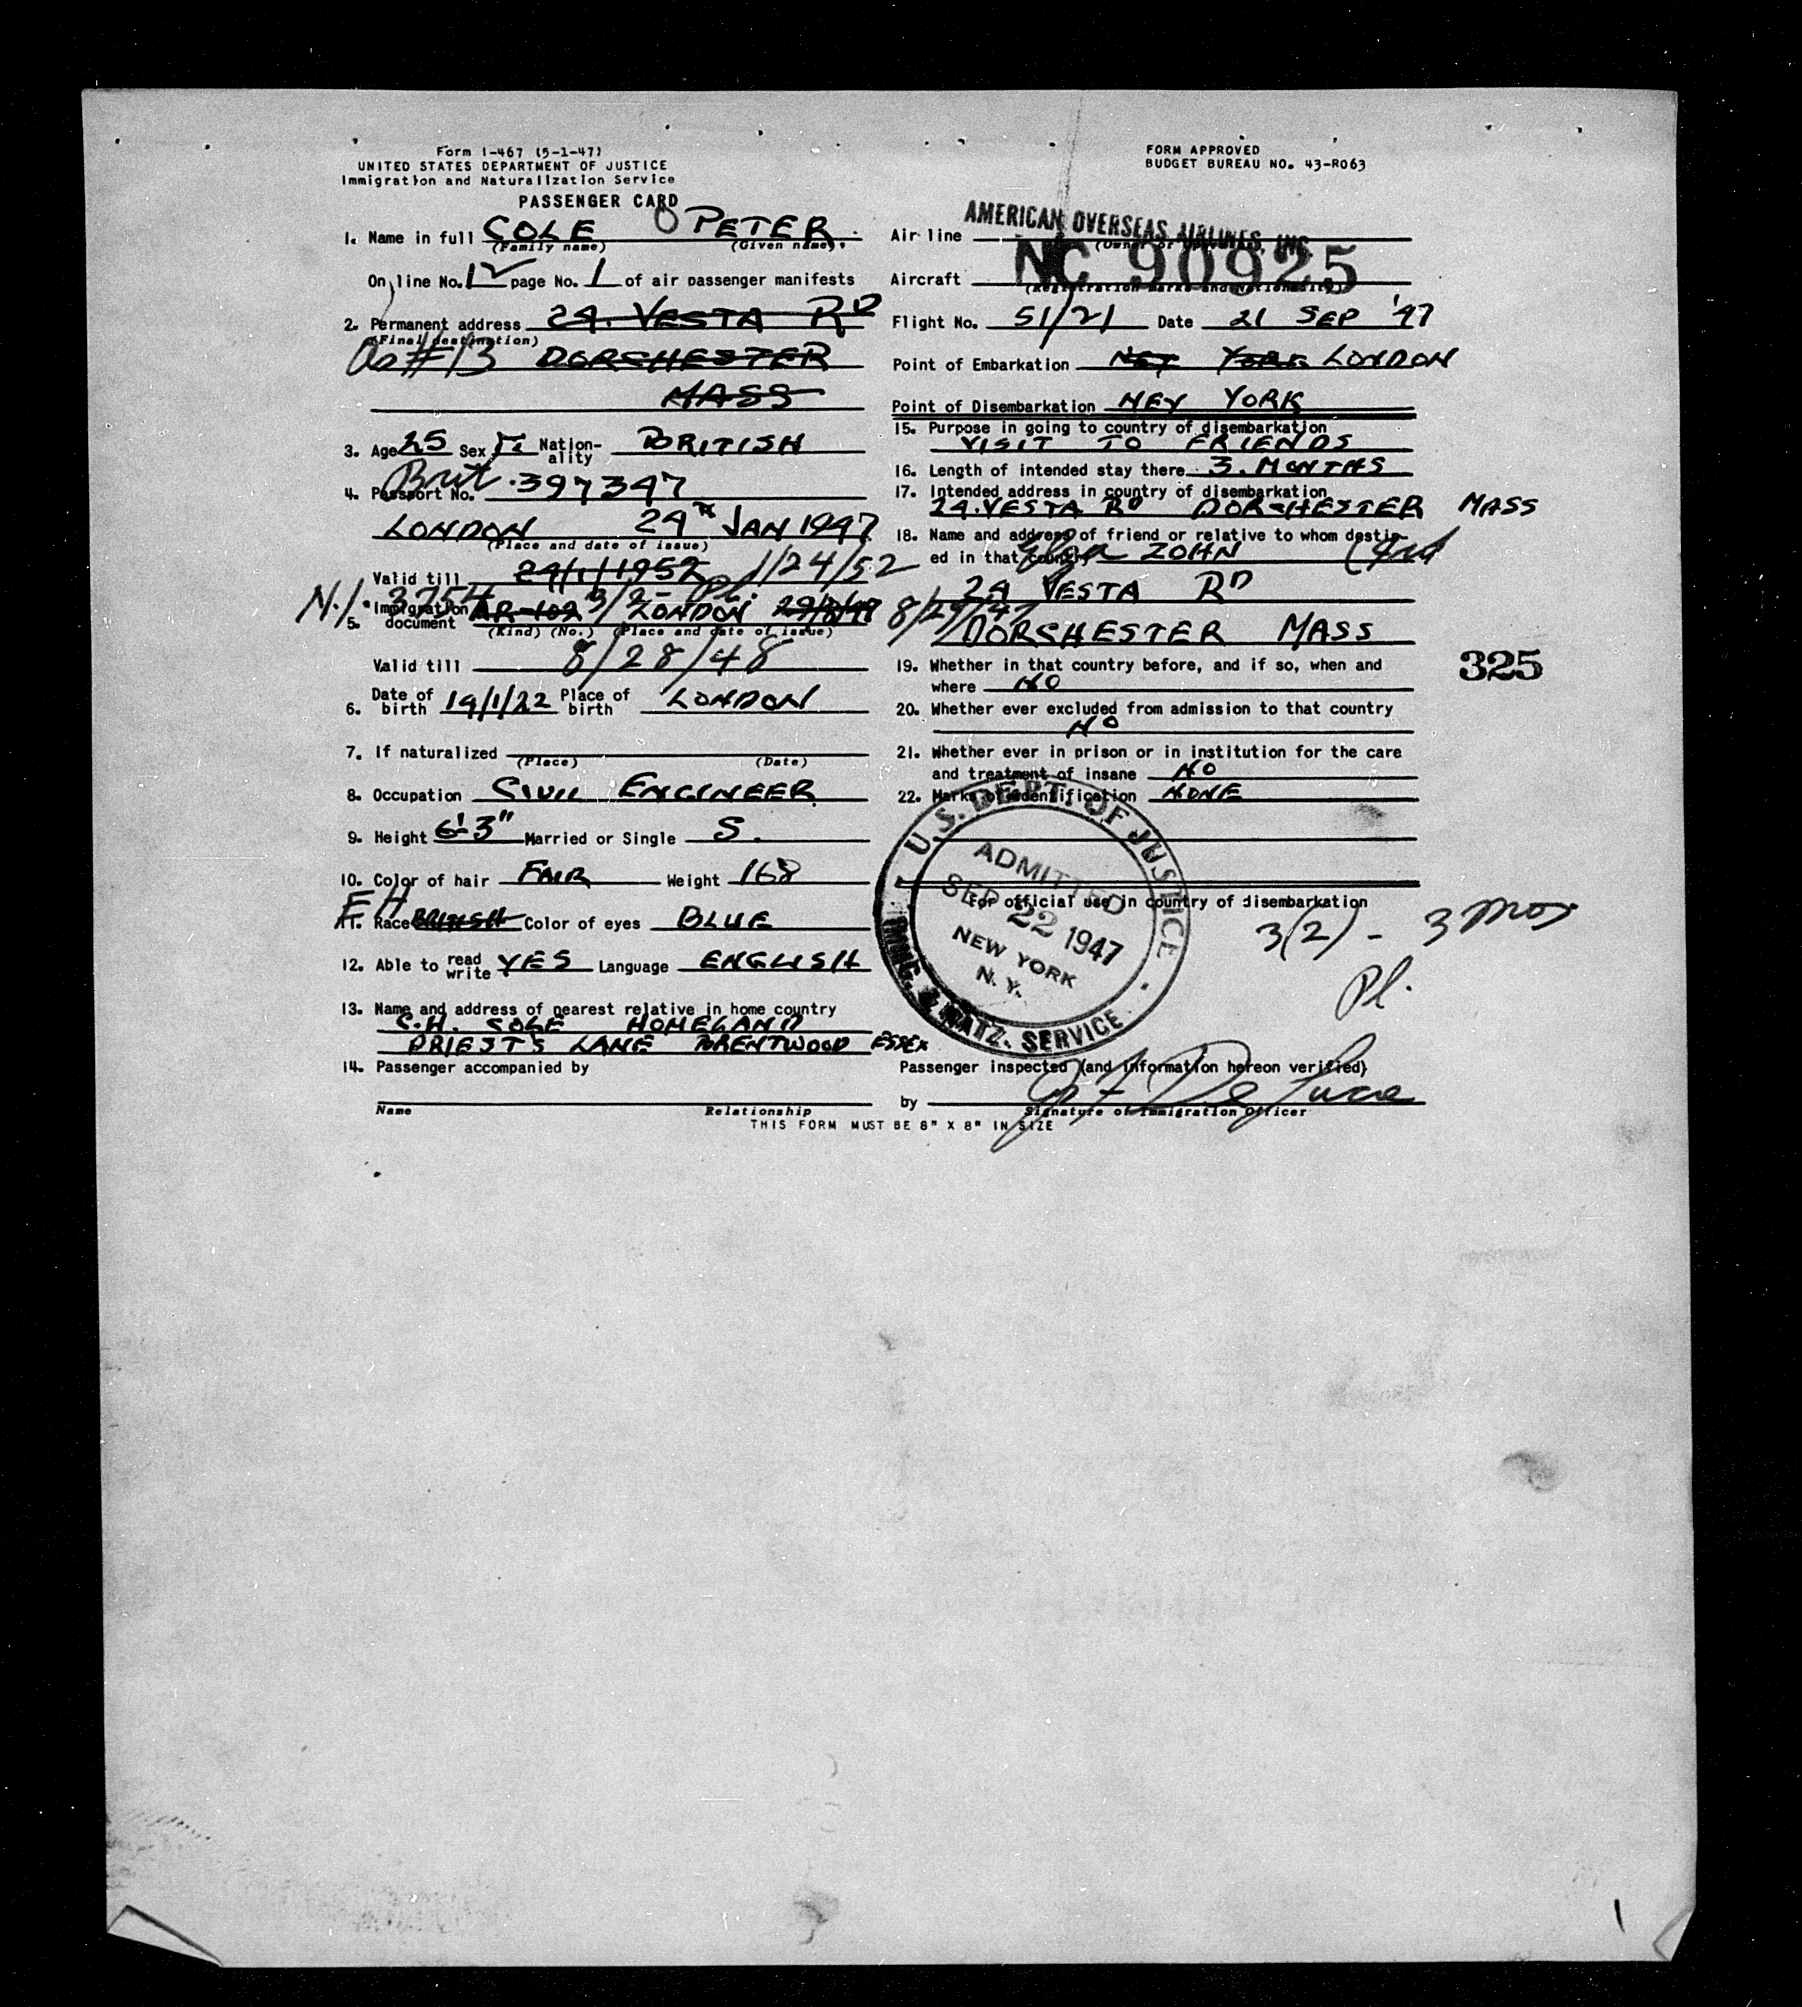 Form I-467 (5-1-47)
UNITED STATES DEPARTMENT OF JUSTICE
Immigration and Naturalization Service
PASSENGER CARD
1. Name in full COLE O PETER
(Family name) (Given name).
On line No. 12 page No. 1 of air passenger manifests
2. Permanent address 24. VESTA RD
(Final destination)
As #13 DORCHESTER
MASS
3. Age 25 Sex M Nation-ality BRITISH
4. Passport No. Brit. 397347
LONDON 24th JAN 1947
(Place and date of issue)
Valid till 24/1/1952 1/24/52
N.I. 3754 3/2- Pl.
5. Immigration document AR-102 LONDON 29/8/47 8/29/47
(Kind) (No.) (Place and date of issue)
Valid till 8/28/48
6. Date of birth 19/1/22 Place of birth LONDON
7. If naturalized
(Place) (Date)
8. Occupation CIVIL ENGINEER
9. Height 6' 3" Married or Single S.
10. Color of hair FAIR Weight 168
EH
11. Race BRITISH Color of eyes BLUE
12. Able to read write YES Language ENGLISH
13. Name and address of nearest relative in home country
C.H. COLE HOMELAND
PRIESTS LANE BRENTWOOD ESSEX
14. Passenger accompanied by
Name Relationship
FORM APPROVED
BUDGET BUREAU NO. 43-R063
Air line AMERICAN OVERSEAS AIRLINES, INC.
Aircraft NC 90925
(Registration marks and nationality)
Flight No. 51/21 Date 21 SEP '47
Point of Embarkation NEW YORK LONDON
Point of Disembarkation NEW YORK
15. Purpose in going to country of disembarkation
VISIT TO FRIENDS
16. Length of intended stay there 3. MONTHS
17. Intended address in country of disembarkation
24. VESTA RD DORCHESTER MASS
18. Name and address of friend or relative to whom destin-
ed in that country ZOHN
24 VESTA RD
DORCHESTER MASS
19. Whether in that country before, and if so, when and
where NO
325
20. Whether ever excluded from admission to that country
NO
21. Whether ever in prison or in institution for the care
and treatment of insane NO
22. Marks of identification NONE
For official use in country of disembarkation
3(2) - 3 mos
Pl.
U.S. DEPT. OF JUSTICE
ADMITTED
SEP 22 1947
NEW YORK
N. Y.
IMMIG. & NATZ. SERVICE
Passenger inspected (and information hereon verified)
by
Signature of Immigration Officer
THIS FORM MUST BE 8" X 8" IN SIZE
1